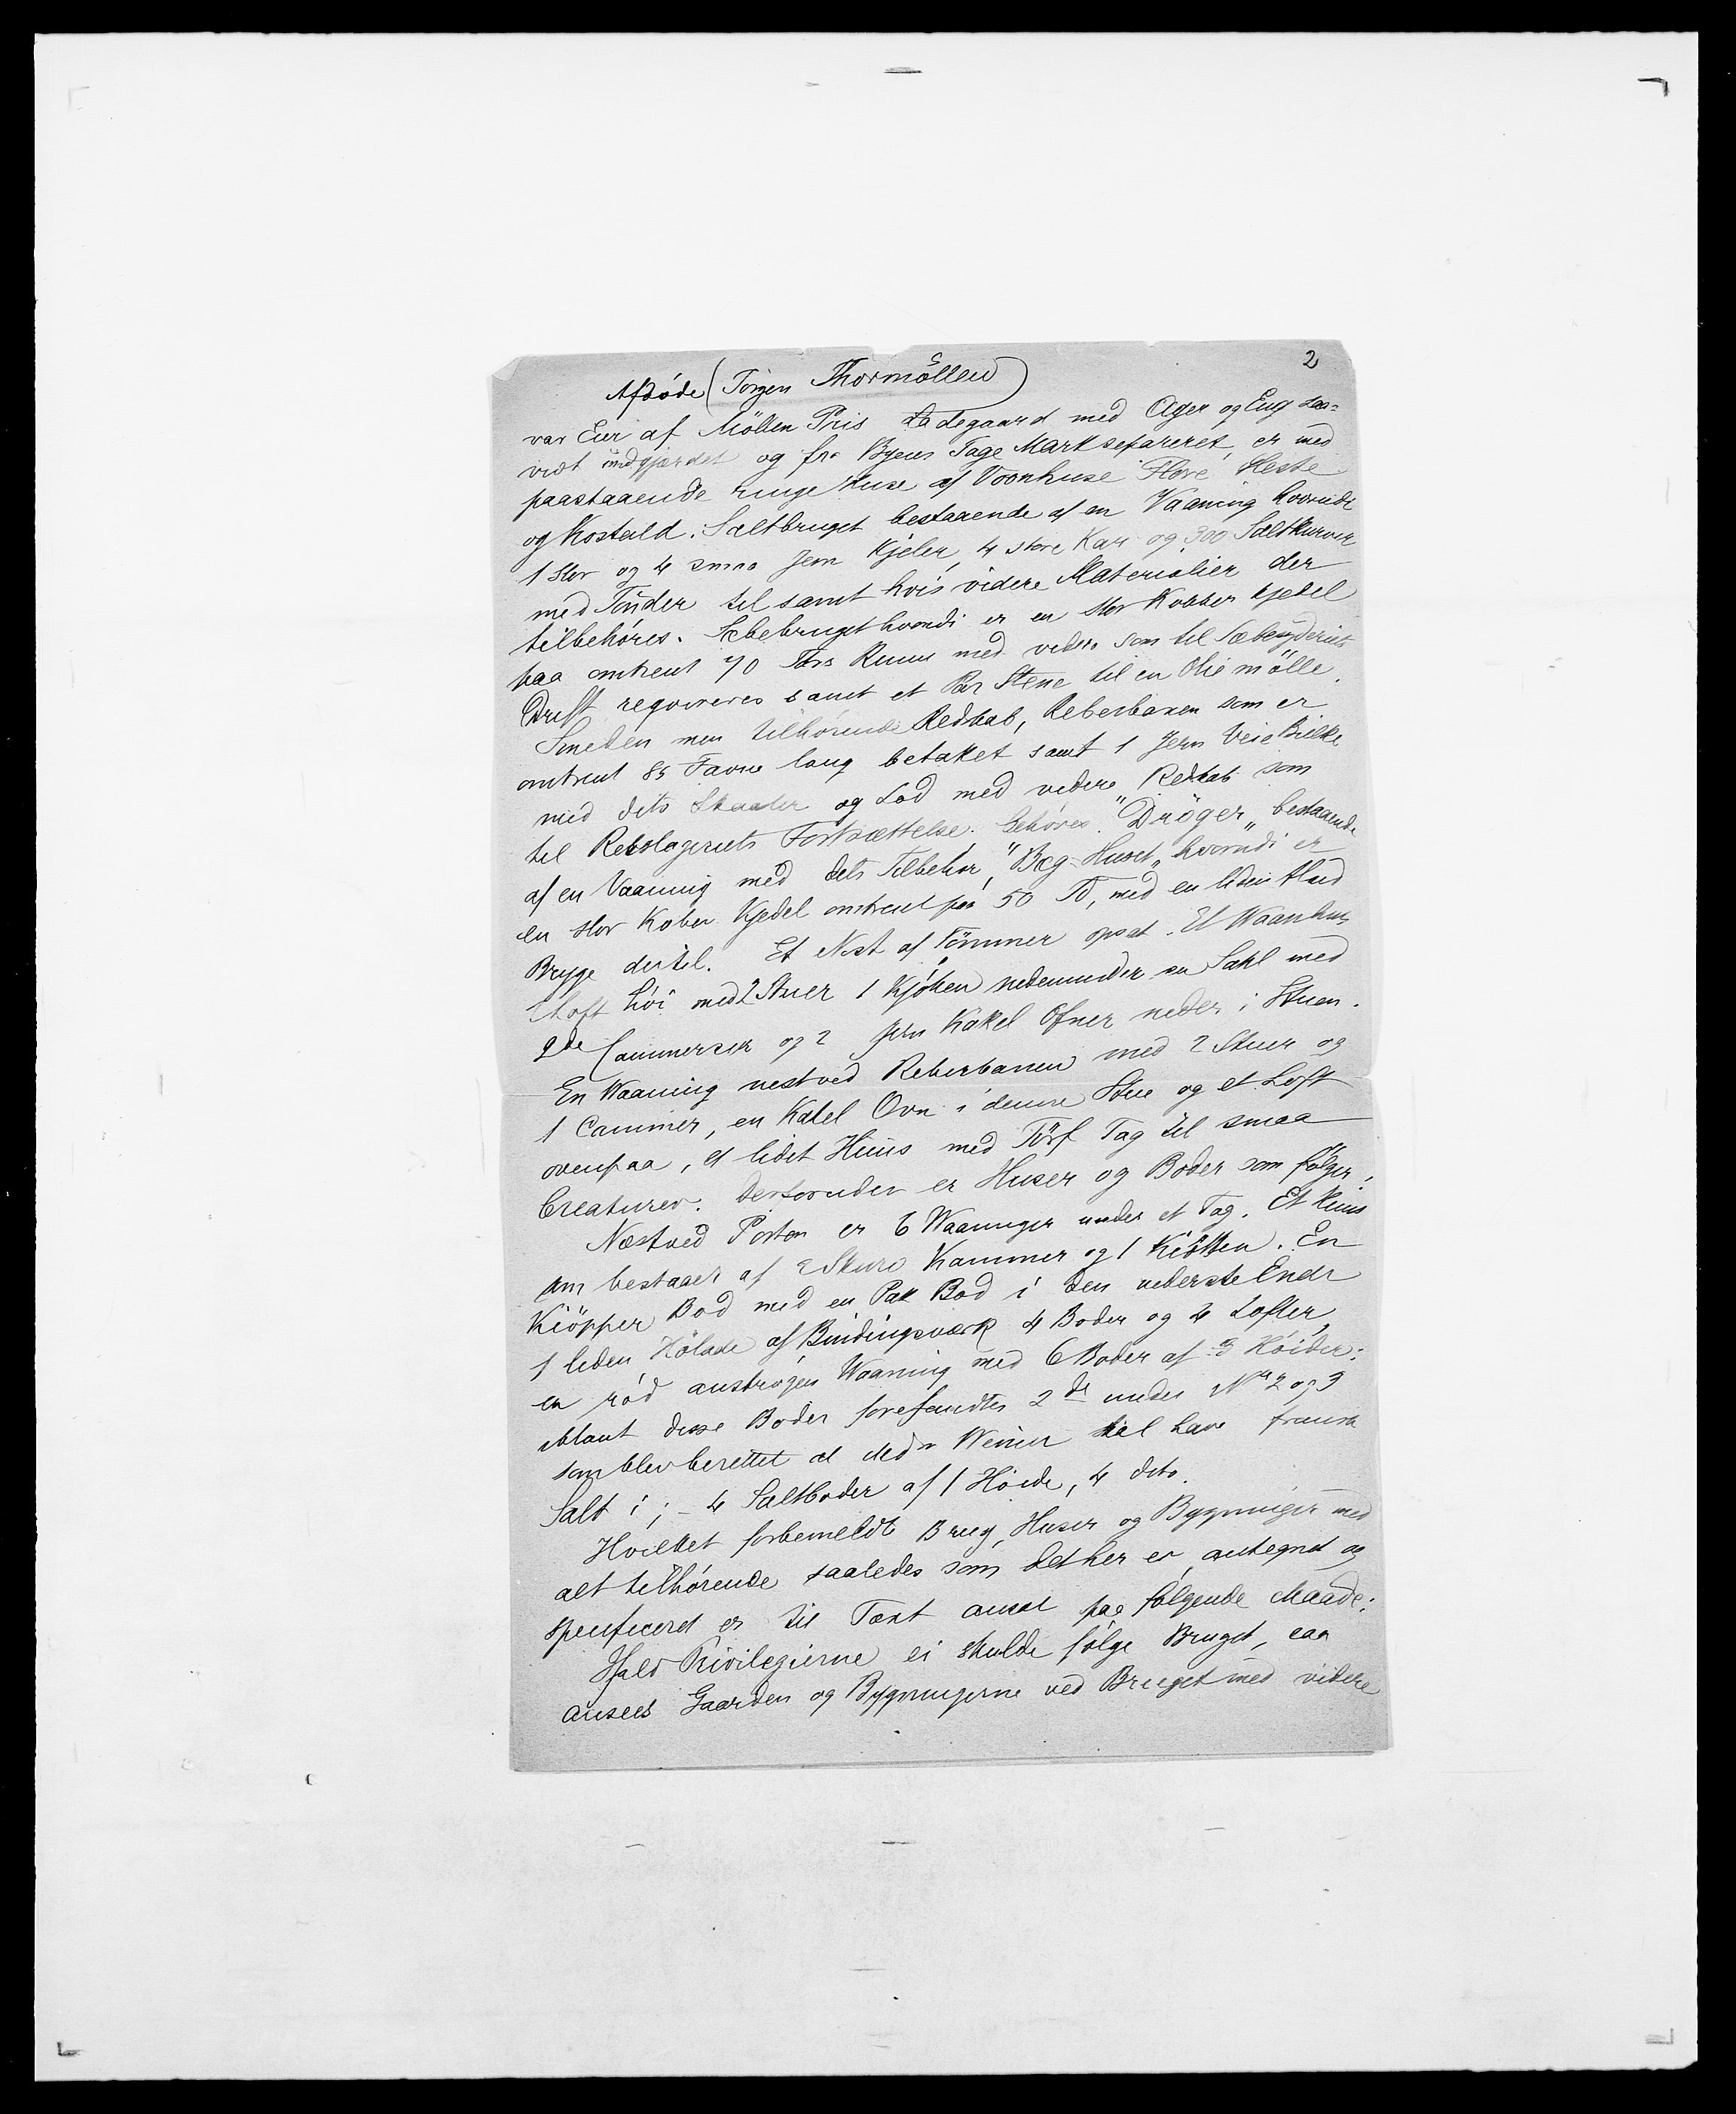 2
Afdöde (Jörgen Thormöllen)
var Eier af Möllen Pris Ladegaard med Ager og Eng saa=
vidt indgjærdet og fra Byens Tage Mark separeret, er med
paastaaende ringe Huse af Voonhuse Flore Heste
og Kostald. Saltbruget bestaaende af en Vaaning hvorudi
1 stor og 4 smaa Jern Kjeler, 4 store Kar og 300 Saltkurver
med Tönder til samt hvis videre Materialier der
tilbehöres. Sæbebruget hvorudi er en stor Kobber kjedel
paa omtrent 70 Tørs Rum med videre som til Sæbesyderiets
Drift reqvireres samt et Par Stene til en Olie mölle.
Smeden men tilhörende Redskab, Reberbanen som er
omtrent 85 Favne lang betaket samt 1 Jern Veie Bielke
med dets Skaaler og Lod med videre Redskab som
til Rebslageriets Fortsættelse behöves. "Dröger" bestaaende
af en Vaaning med dets Tilbehör, "Beg-Huset" hvorudi er
en stor Kober Kjedel omtrent paa 50 Td, med en liden
Brygge dertil. Et Nöst af Tömmer opsat. Et Waanhus
1 Loft höi med 2 Stuer 1 Kjöken nedenunder en Sahl med
2de Cammerser og 2 Jern Kakel Ofner neder i Stuen.
En Waaning nest ved Reberbanen med 2 Stuer og
1 Cammer, en Kakel Ovn i denne Stue og et Loft
ovenpaa, et lidet Huus med Törf Tag til smaa
Creaturer. Desforuden er Huser og Boder som fölger,
Næst ved Porten er 6 Waaninger under et Tag. Et Huus
som bestaaer af 2 Stuer Kammer og 1 Kiökken. En
Kiöpper Bod med en Pak Bod i den nederste Ende
1 liden Hölade af Bindingsværk 4 Boder og 4 Lofter,
en röd anströgen Waaning med 6 Boder af 3 Höider:
iblant disse Boder forefandtes 2de under Nr 2 og 3
som blev berettet at Wenier skal have fransk
Salt i; - 4 Saltboder af 1 Höide, 4 dito.
Hvilket forbemeldte Brug, Huser og Bygninger med
alt tilhörende saaledes som det her er antegnet og
specificered er til Taxt ansat paa fölgende Maade:
Ifald Privilegierne ei skulde fölge Bruget, saa
ansees Gaarden og Bygningerne ved Bruget med videre